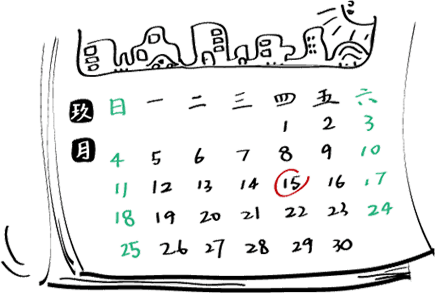 玖月
日 一 二 三 四 五 六
1 2 3
4 5 6 7 8 9 10
11 12 13 14 15 16 17
18 19 20 21 22 23 24
25 26 27 28 29 30